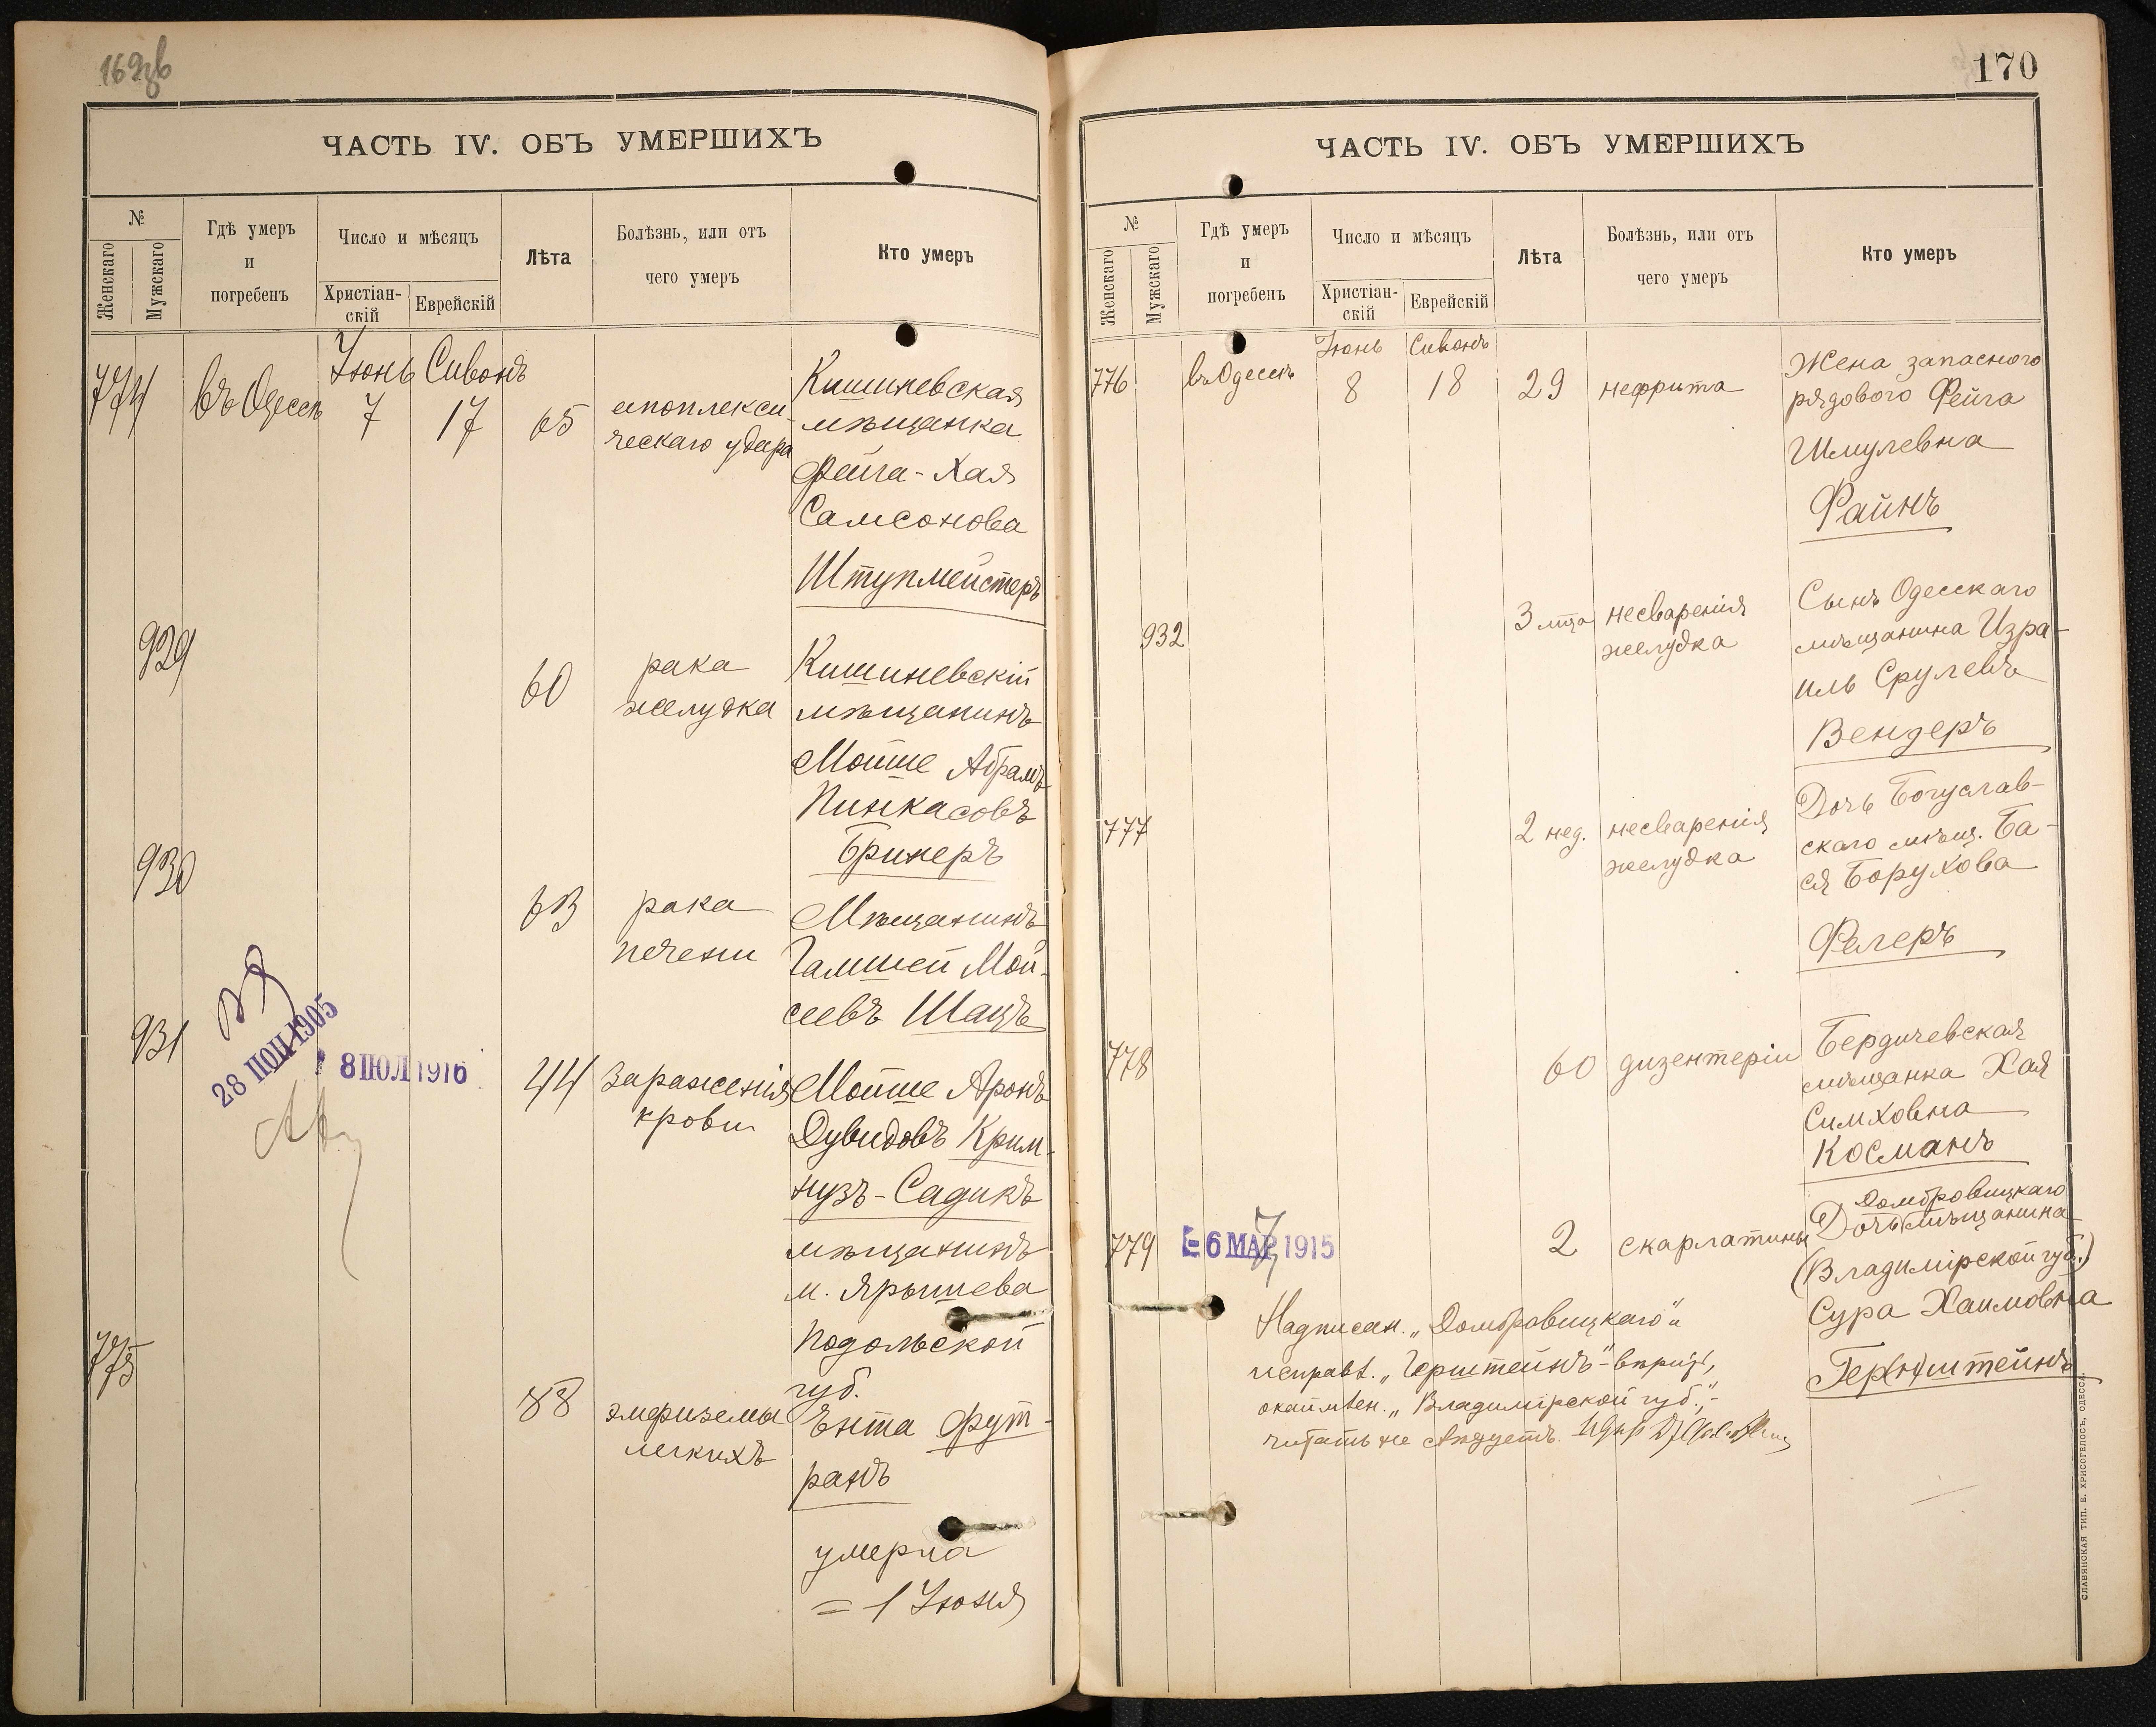 ЧАСТЬ IV. ОБЪ УМЕРШИХЪ
№
Женскаго
Мужскаго
Гдѣ умеръ
и
погребенъ
Число и мѣсяцъ
Христіан-
скій
Еврейскій
Лѣта
Болѣзнь, или отъ
чего умеръ
Кто умеръ
Іюнь Сивонъ
774 въ Одессѣ 7 17 65
апоплекси-
ческаго удара
Кишиневская
мѣщанка
Фейга-Хая
Самсонова
Штупмейстеръ
929
60
рака
желудка
Кишиневскій
мѣщанинъ
Мойше Абрамъ
Пинкасовъ
Бринеръ
930
63
рака
печени
Мѣщанинъ
Гамшей Мой-
сеевъ Шацъ
931
28 ІЮН 1905
8 ІЮЛ 1916
44
Зараженія
крови
Мойше Аронъ
Дувидовъ Крим-
нузъ-Садикъ
мѣщанинъ
м. Ярышева
Подольской
губ.
775
88
эмфиземы
легкихъ
Ента Фут-
ранъ
умерла
= 1 Іюня
170
ЧАСТЬ IV. ОБЪ УМЕРШИХЪ
№
Женскаго
Мужскаго
Гдѣ умеръ
и
погребенъ
Число и мѣсяцъ
Христіан-
скій
Еврейскій
Лѣта
Болѣзнь, или отъ
чего умеръ
Кто умеръ
Іюнь Сивонъ
776 въ Одессѣ 8 18 29 нефрита
Жена запаснаго
рядового Фейга
Шмулевна
Файнъ
932
3 мца
несваренія
желудка
Сынъ Одесскаго
мѣщанина Изра-
иль Срулевъ
Вендеръ
777
2 нед.
несваренія
желудка
Дочь Богуслав-
скаго мѣщ. Ба-
ся Борухова
Фелеръ
778
60 дизентеріи
Бердичевская
мѣщанка Хая
Симховна
Косманъ
779
6 МАР 1915
2 скарлатины
Домбровицкаго
Дочь мѣщанина
(Владимірской губ.)
Сура Хаимовна
Гер(н)штейнъ
Надписан. „Домбровицкаго“ и
исправл. „Герштейнъ“ - вѣрить,
окаймлен. „Владимірской губ.“ -
читать не слѣдуетъ.
СЛАВЯНСКАЯ ТИП. Е. ХРИСОГЕЛОСЪ, ОДЕССА.